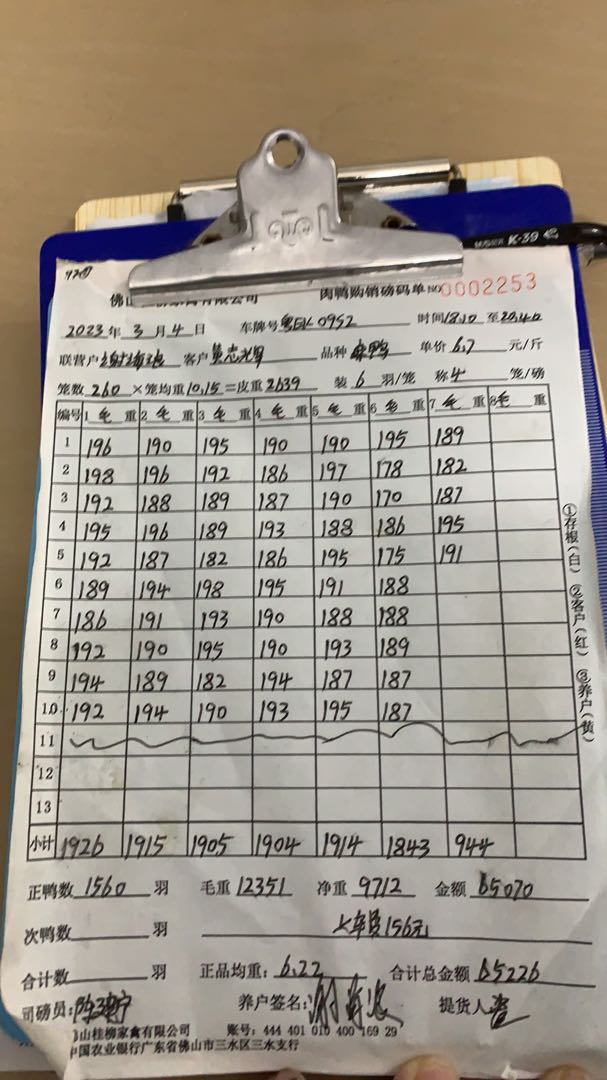 佛山 家禽有限公司 肉鸭购销磅码单 NO 0002253
2023年 3月 4日 车牌号 0952 时间 18:10 至 20:40
联营户 客户 黄志辉 品种 麻鸭 单价 6.7 元/斤
笼数 260 ×笼均重 10.15 =皮重 2639 装 6 羽/笼 称 4 笼/磅
编号 1 毛 重 2 毛 重 3 毛 重 4 毛 重 5 毛 重 6 毛 重 7 毛 重 8 毛 重
1 196 190 195 190 190 195 189
2 198 196 192 186 197 178 182
3 192 188 189 187 190 170 187
4 195 196 189 193 188 186 195
5 192 187 182 186 195 175 191
6 189 194 198 195 191 188
7 186 191 193 190 188 188
8 192 190 195 190 193 189
9 194 189 182 194 187 187
10 192 194 190 193 195 187
11
12
13
小计 1926 1915 1905 1904 1914 1843 944
正鸭数 1560 羽 毛重 12351 净重 9712 金额 65070
次鸭数 羽 上车费156元
合计数 羽 正品均重: 6.22 合计总金额 65226
司磅员: 养户签名: 提货人
山桂柳家禽有限公司 账号: 444 401 010 400 169 29
中国农业银行广东省佛山市三水区三水支行
①存根(白) ②客户(红) ③养户(黄)
K-39